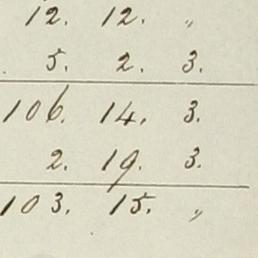 12. 12. „
5. 2. 3.
106. 14. 3.
2. 19. 3.
103. 15. „